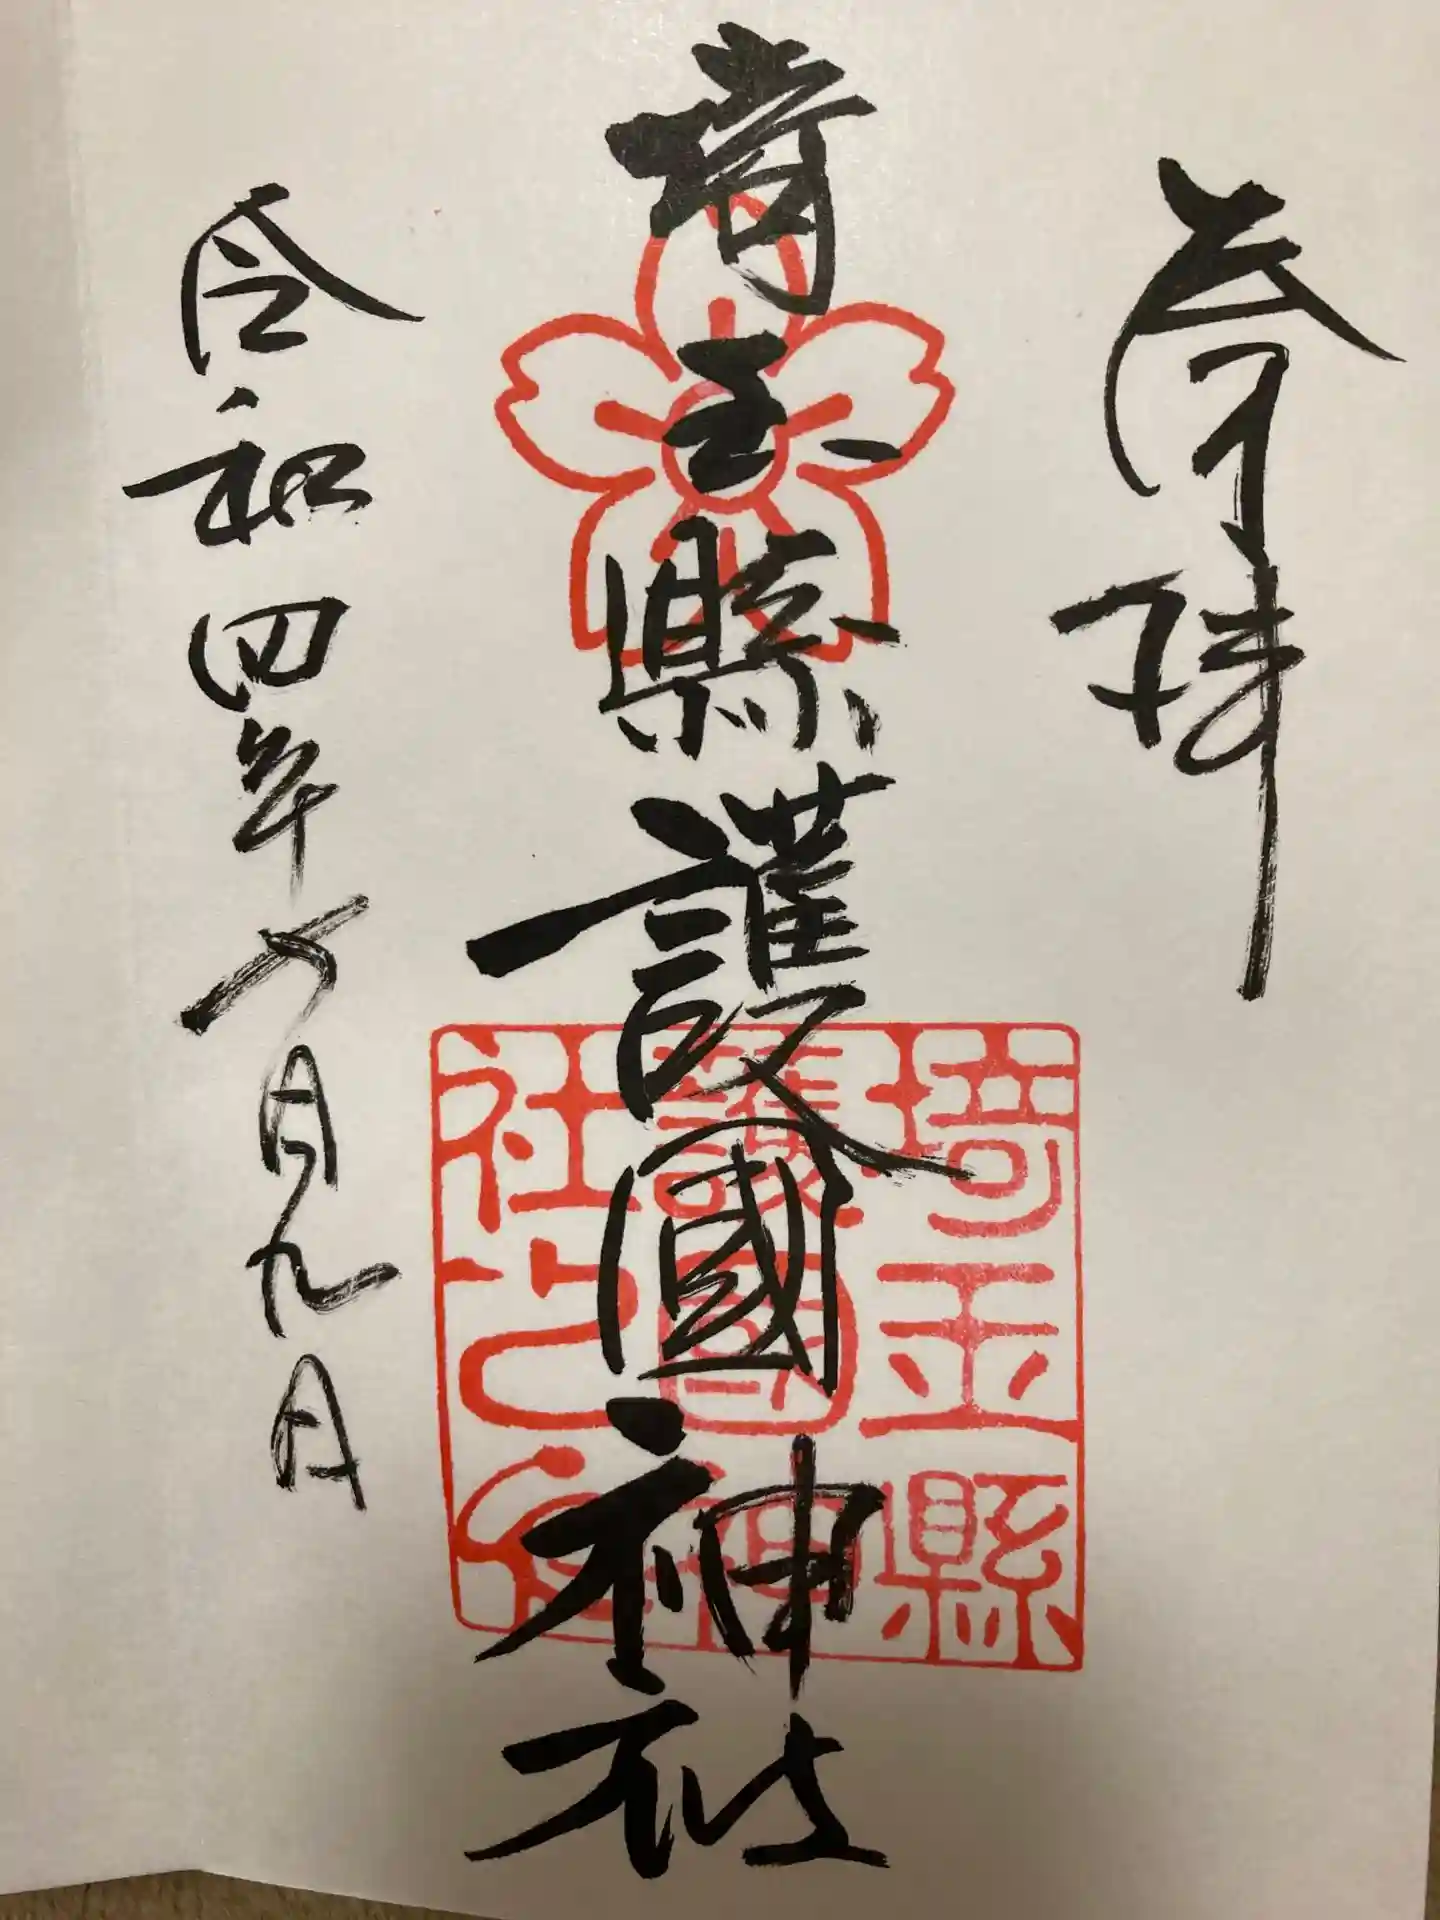 奉拝
埼玉縣護國神社
令和四年月九日
埼玉縣
護國神
社之印